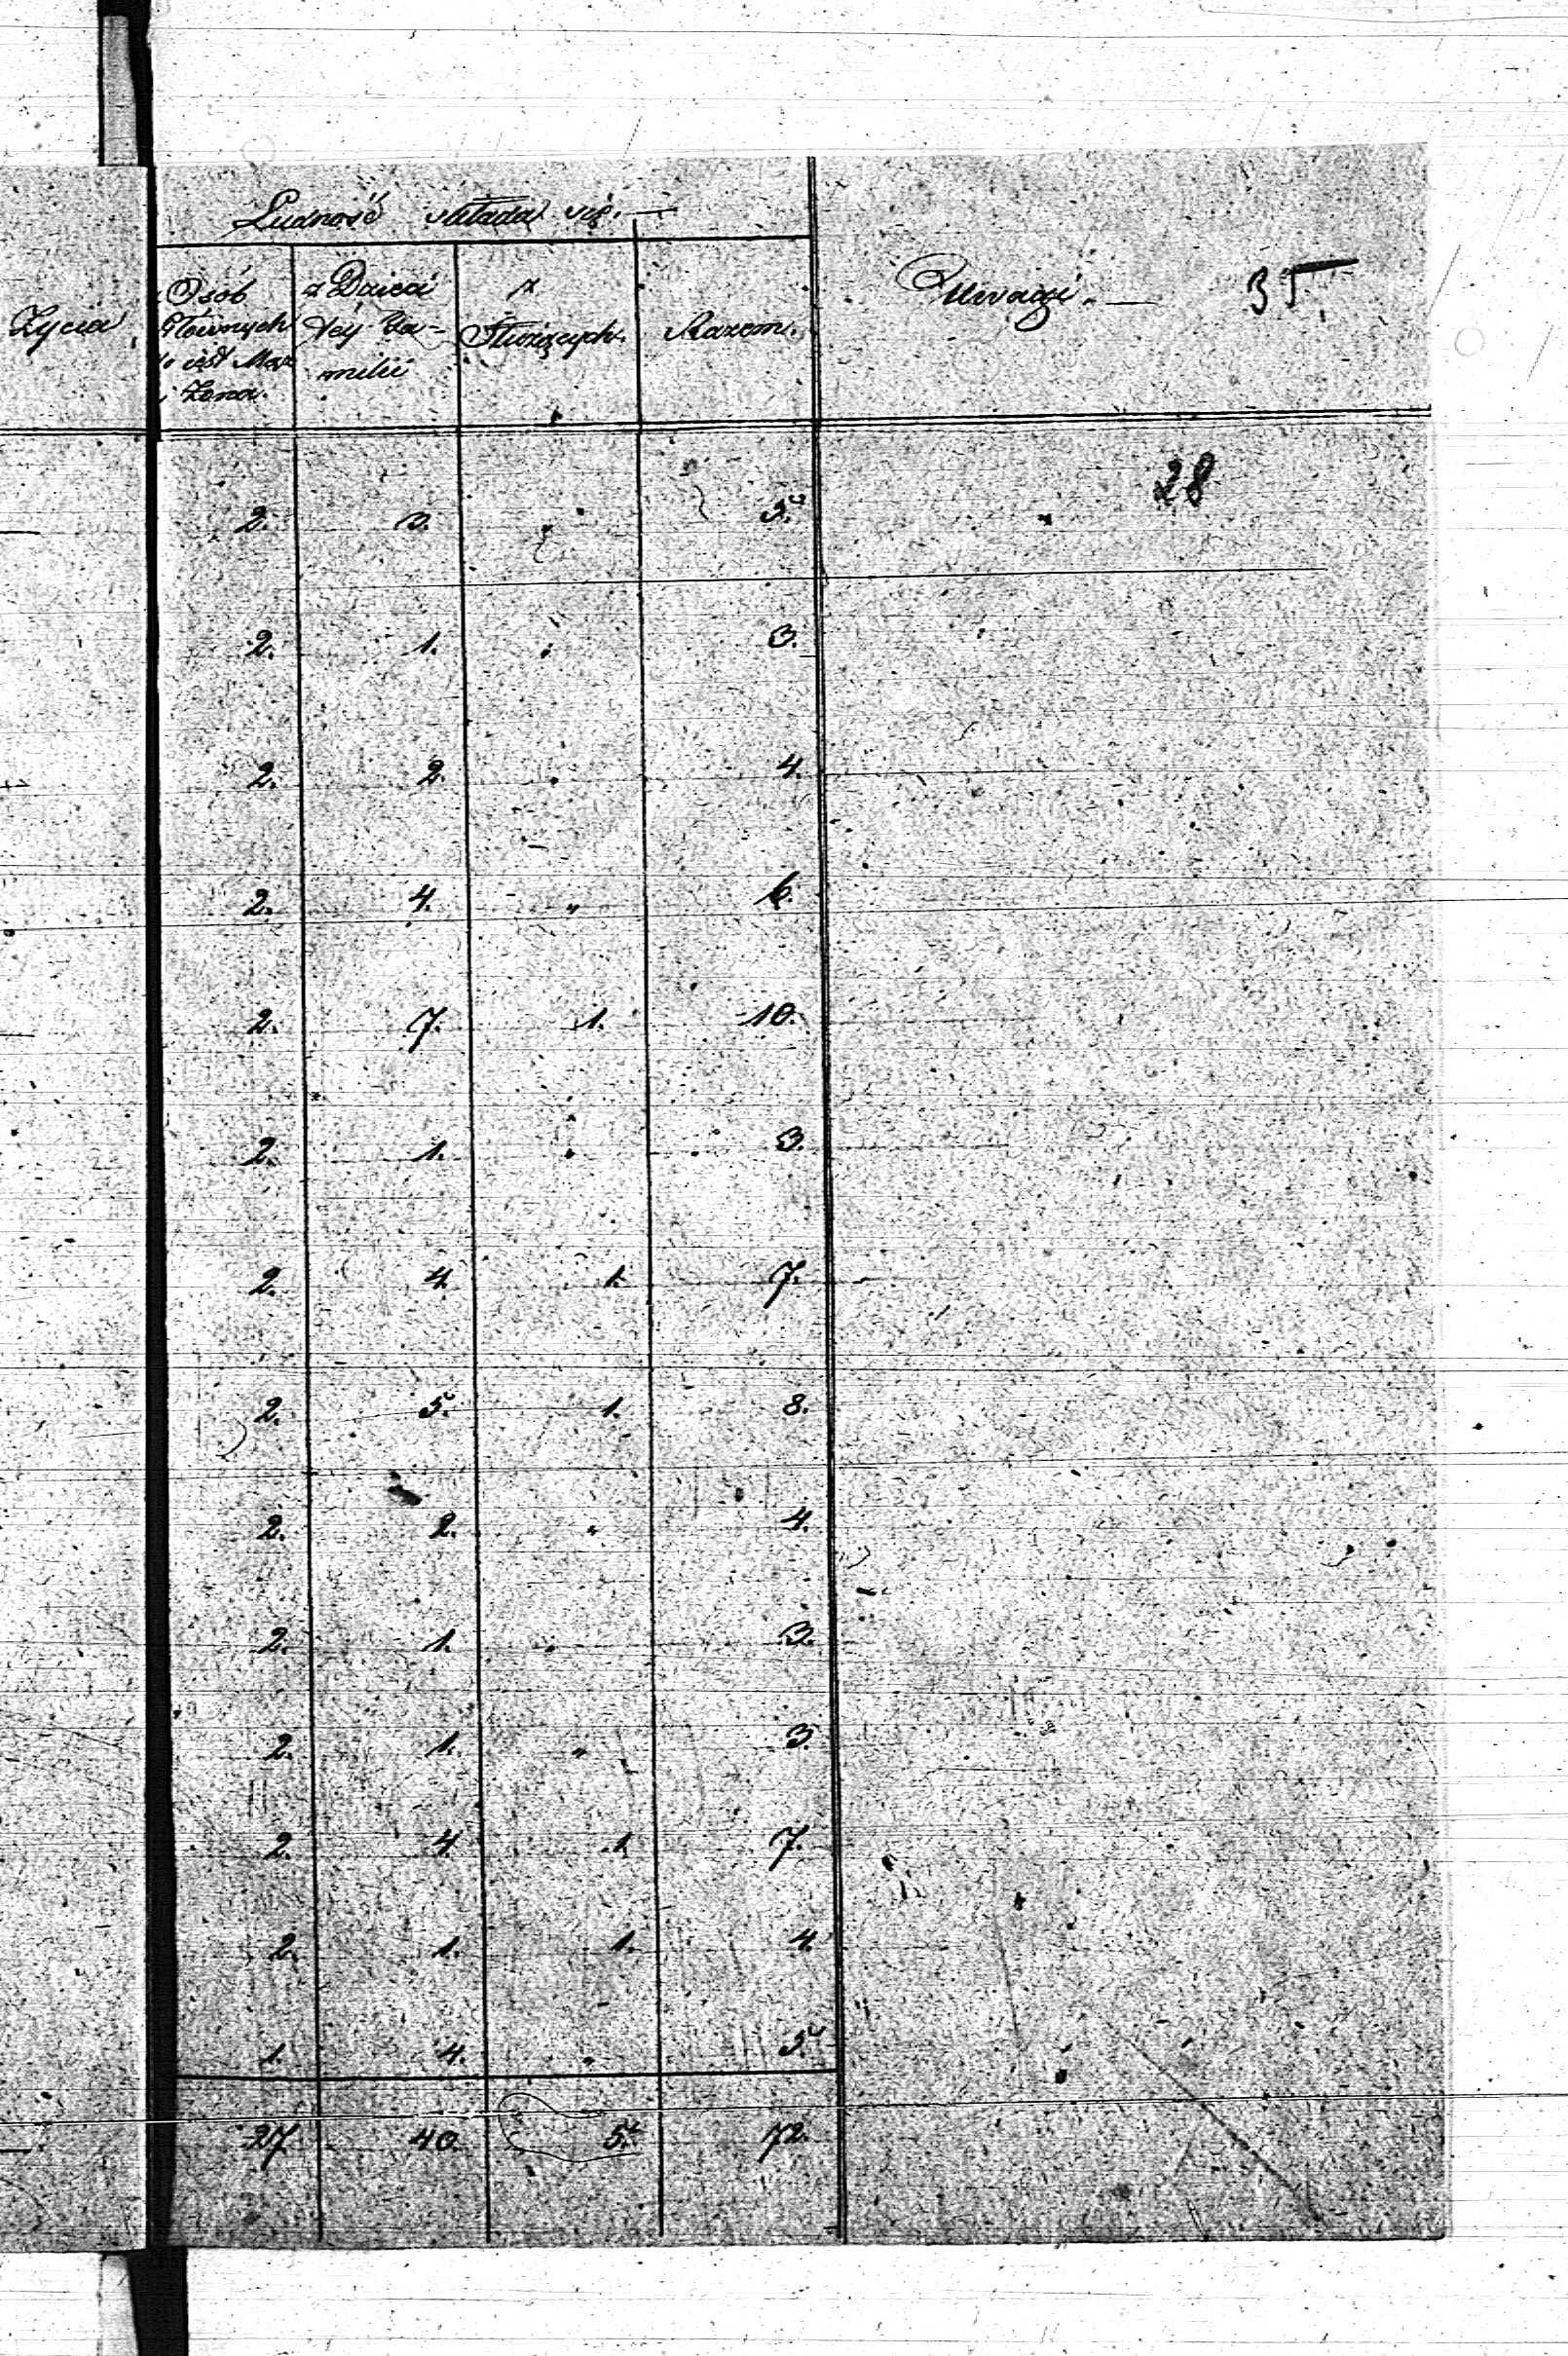 Ludność składa się. —
Życia
Osób Głównych to iest Mąż i Żona.
z Dzieci téy Familii
z Służących.
Razem.
Uwagi. —
35.
28
2. 3. „ 5.
2. 1. „ 3.
2. 2. „ 4.
2. 4. „ 6.
2. 7. 1. 10.
2. 1. „ 3.
2. 4. 1. 7.
2. 5. 1. 8.
2. 2. „ 4.
2. 1. „ 3.
2. 1. „ 3.
2. 4. 1. 7.
2. 1. 1. 4.
1. 4. „ 5.
27 40 5. 72.